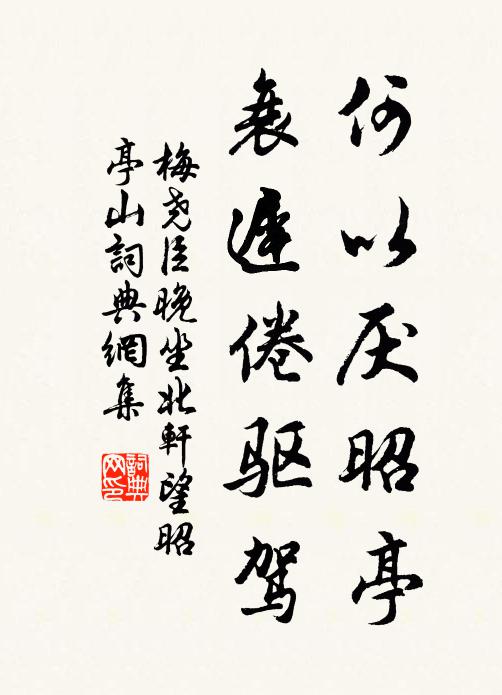 何以厌昭亭
衰遅倦驱驾
梅尧臣晚坐北軒望昭
亭山詞典網集
詞典
网印